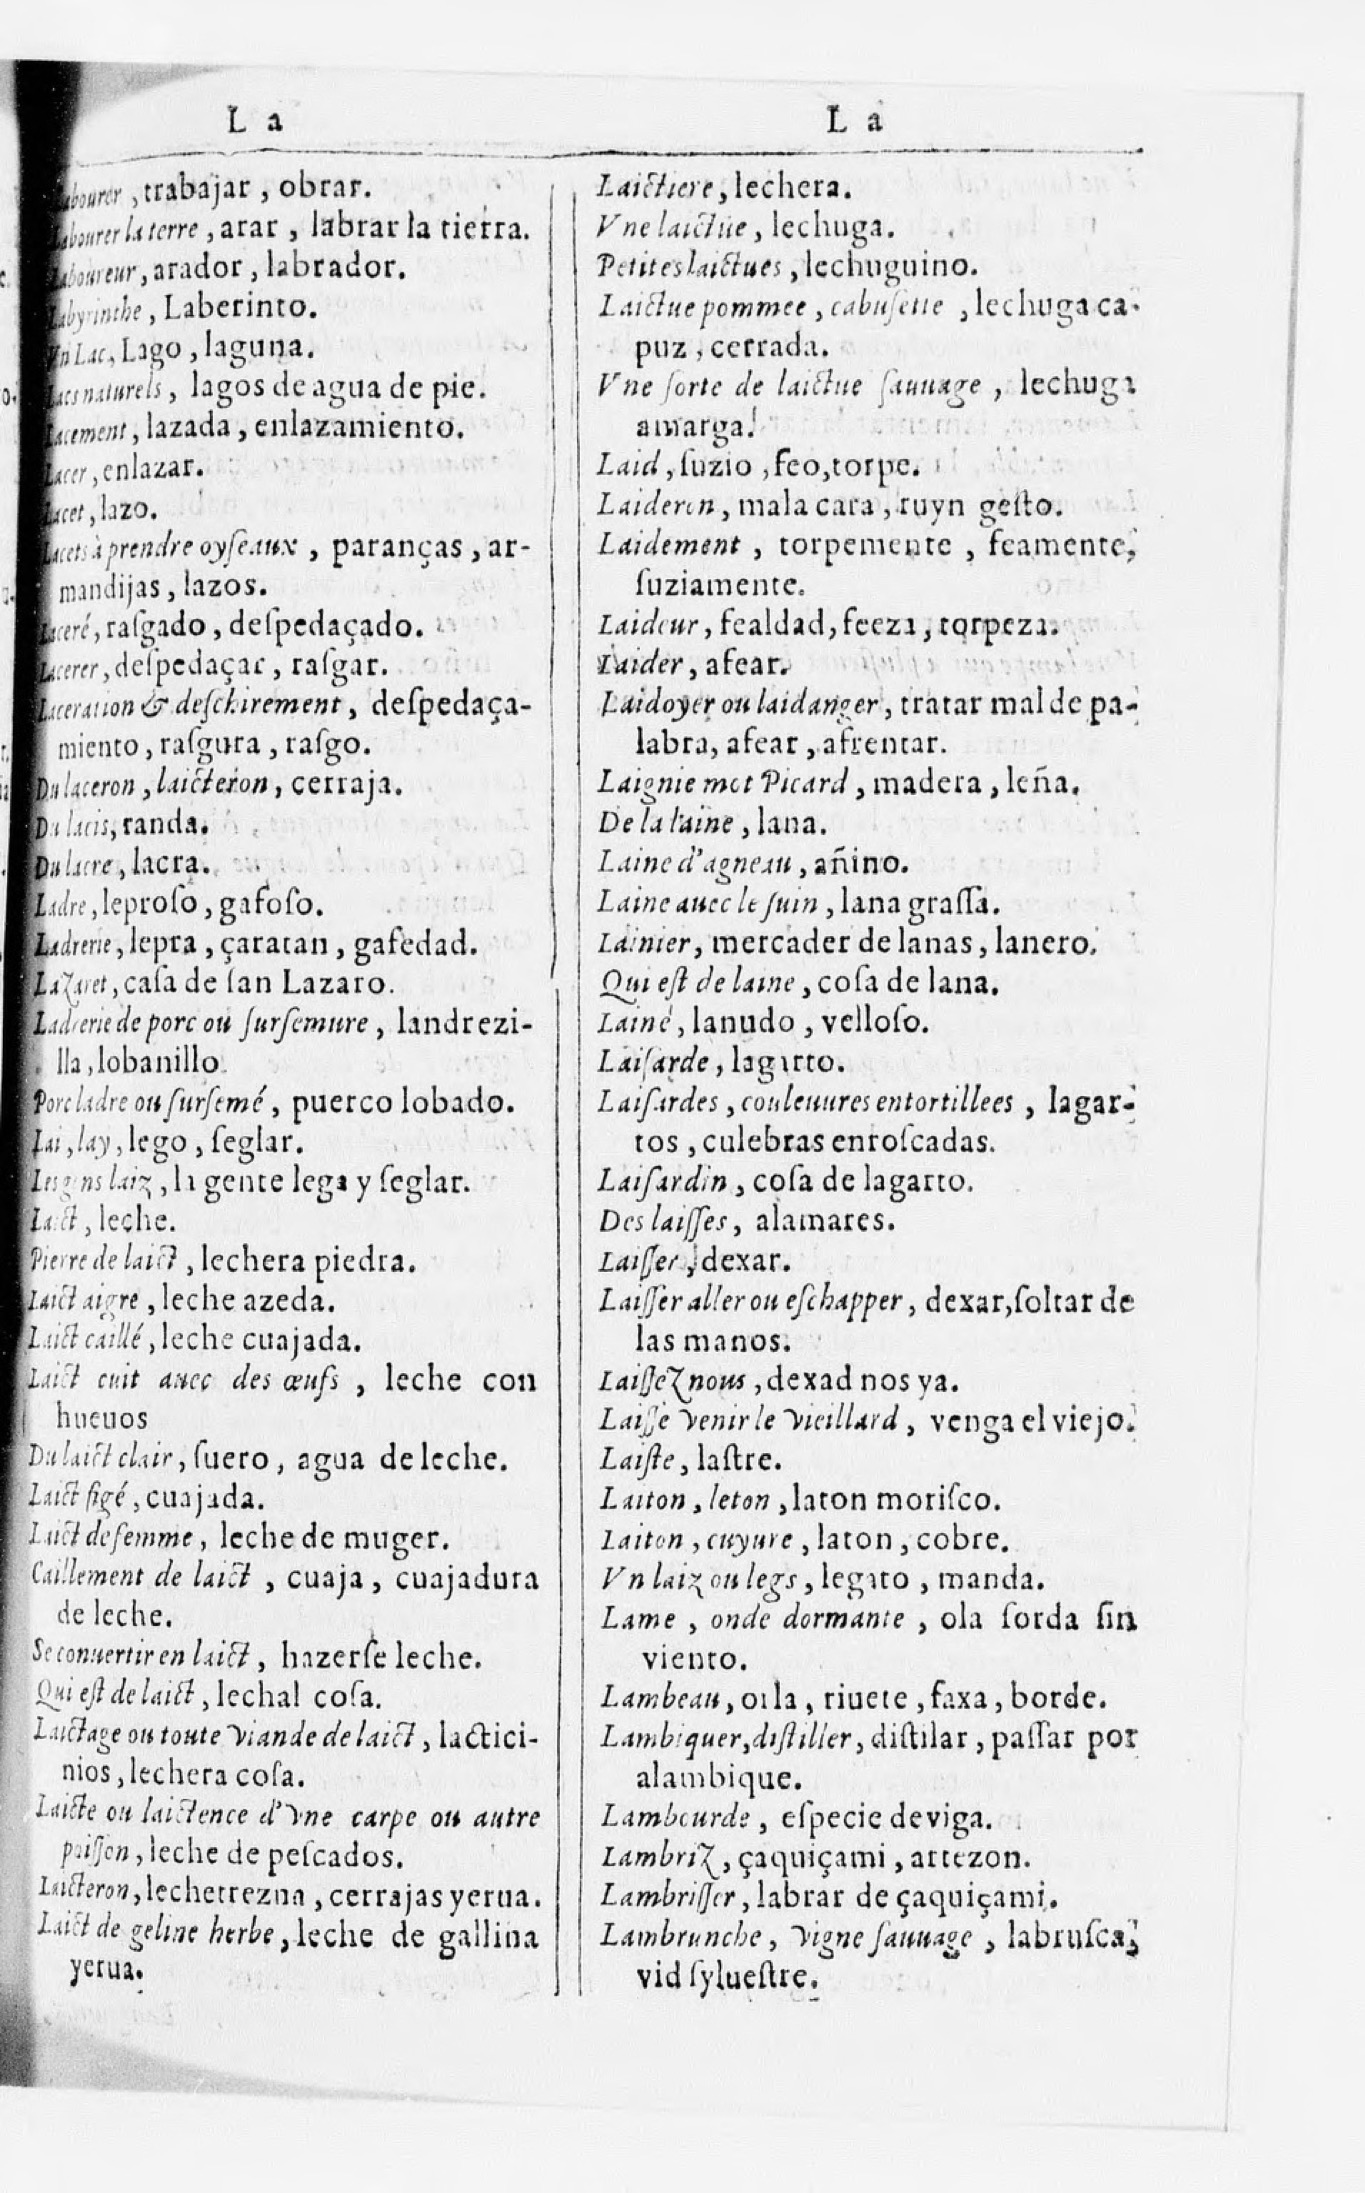 L a
Labourer, trabajar, obrar.
Labourer la terre, arar, labrar la tierra.
Laboureur, arador, labrador.
Labyrinthe, Laberinto.
Vn Lac, Lago, laguna.
Lacs naturels, lagos de agua de pie.
Lacement, lazada, enlazamiento.
Lacer, enlazar.
Lacet, lazo.
Lacets à prendre oyſeaux, paranças, ar-
mandijas, lazos.
Laceré, raſgado, deſpedaçado.
Lacerer, deſpedaçar, raſgar.
Laceration & deſchirement, deſpedaça-
miento, raſgura, raſgo.
Du laceron, laicteron, cerraja.
Du lacis, randa.
Du lacre, lacra.
Ladre, leproſo, gafoſo.
Ladrerie, lepra, çaratan, gafedad.
Lazaret, caſa de ſan Lazaro.
Ladrerie de porc ou ſurſemure, landrezi-
lla, lobanillo.
Porc ladre ou ſurſemé, puerco lobado.
Lai, lay, lego, ſeglar.
Les gens laiz, la gente lega y ſeglar.
Laict, leche.
Pierre de laict, lechera piedra.
Laict aigre, leche azeda.
Laict caillé, leche cuajada.
Laict cuit auec des œufs, leche con
hueuos
Du laict clair, ſuero, agua de leche.
Laict figé, cuajada.
Laict de femme, leche de muger.
Caillement de laict, cuaja, cuajadura
de leche.
Se conuertir en laict, hazerſe leche.
Qui eſt de laict, lechal coſa.
Laictage ou toute viande de laict, lactici-
nios, lechera coſa.
Laicte ou laictence d'vne carpe ou autre
poiſſon, leche de peſcados.
Laicteron, lechetrezna, cerrajas yerua.
Laict de geline herbe, leche de gallina
yerua.
L a
Laictiere, lechera.
Vne laictue, lechuga.
Petites laictues, lechuguino.
Laictue pommee, cabuſette, lechuga ca-
puz, cerrada.
Vne ſorte de laictue ſauuage, lechuga
amarga.
Laid, ſuzio, feo, torpe.
Laideron, mala cara, ruyn geſto.
Laidement, torpemente, feamente,
ſuziamente.
Laideur, fealdad, feeza, torpeza.
Laider, afear.
Laidoyer ou laidanger, tratar mal de pa-
labra, afear, afrentar.
Laignie mot Picard, madera, leña.
De la laine, lana.
Laine d'agneau, añino.
Laine auec le ſuin, lana graſſa.
Lainier, mercader de lanas, lanero.
Qui eſt de laine, coſa de lana.
Lainé, lanudo, velloſo.
Laiſarde, lagarto.
Laiſardes, couleuures entortillees, lagar-
tos, culebras enroſcadas.
Laiſardin, coſa de lagarto.
Des laiſſes, alamares.
Laiſſer, dexar.
Laiſſer aller ou eſchapper, dexar, ſoltar de
las manos.
Laiſſez nous, dexad nos ya.
Laiſſe venir le vieillard, venga el viejo.
Laiſte, laſtre.
Laiton, leton, laton moriſco.
Laiton, cuyure, laton, cobre.
Vn laiz ou legs, legato, manda.
Lame, onde dormante, ola ſorda ſin
viento.
Lambeau, orla, riuete, faxa, borde.
Lambiquer, diſtiller, diſtilar, paſſar por
alambique.
Lambourde, eſpecie de viga.
Lambriz, çaquiçami, artezon.
Lambriſſer, labrar de çaquiçami.
Lambrunche, vigne ſauuage, labruſca,
vid ſylueſtre.